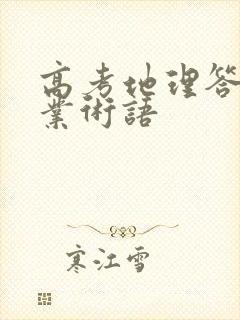 高考地理答
業術語
寒江雪